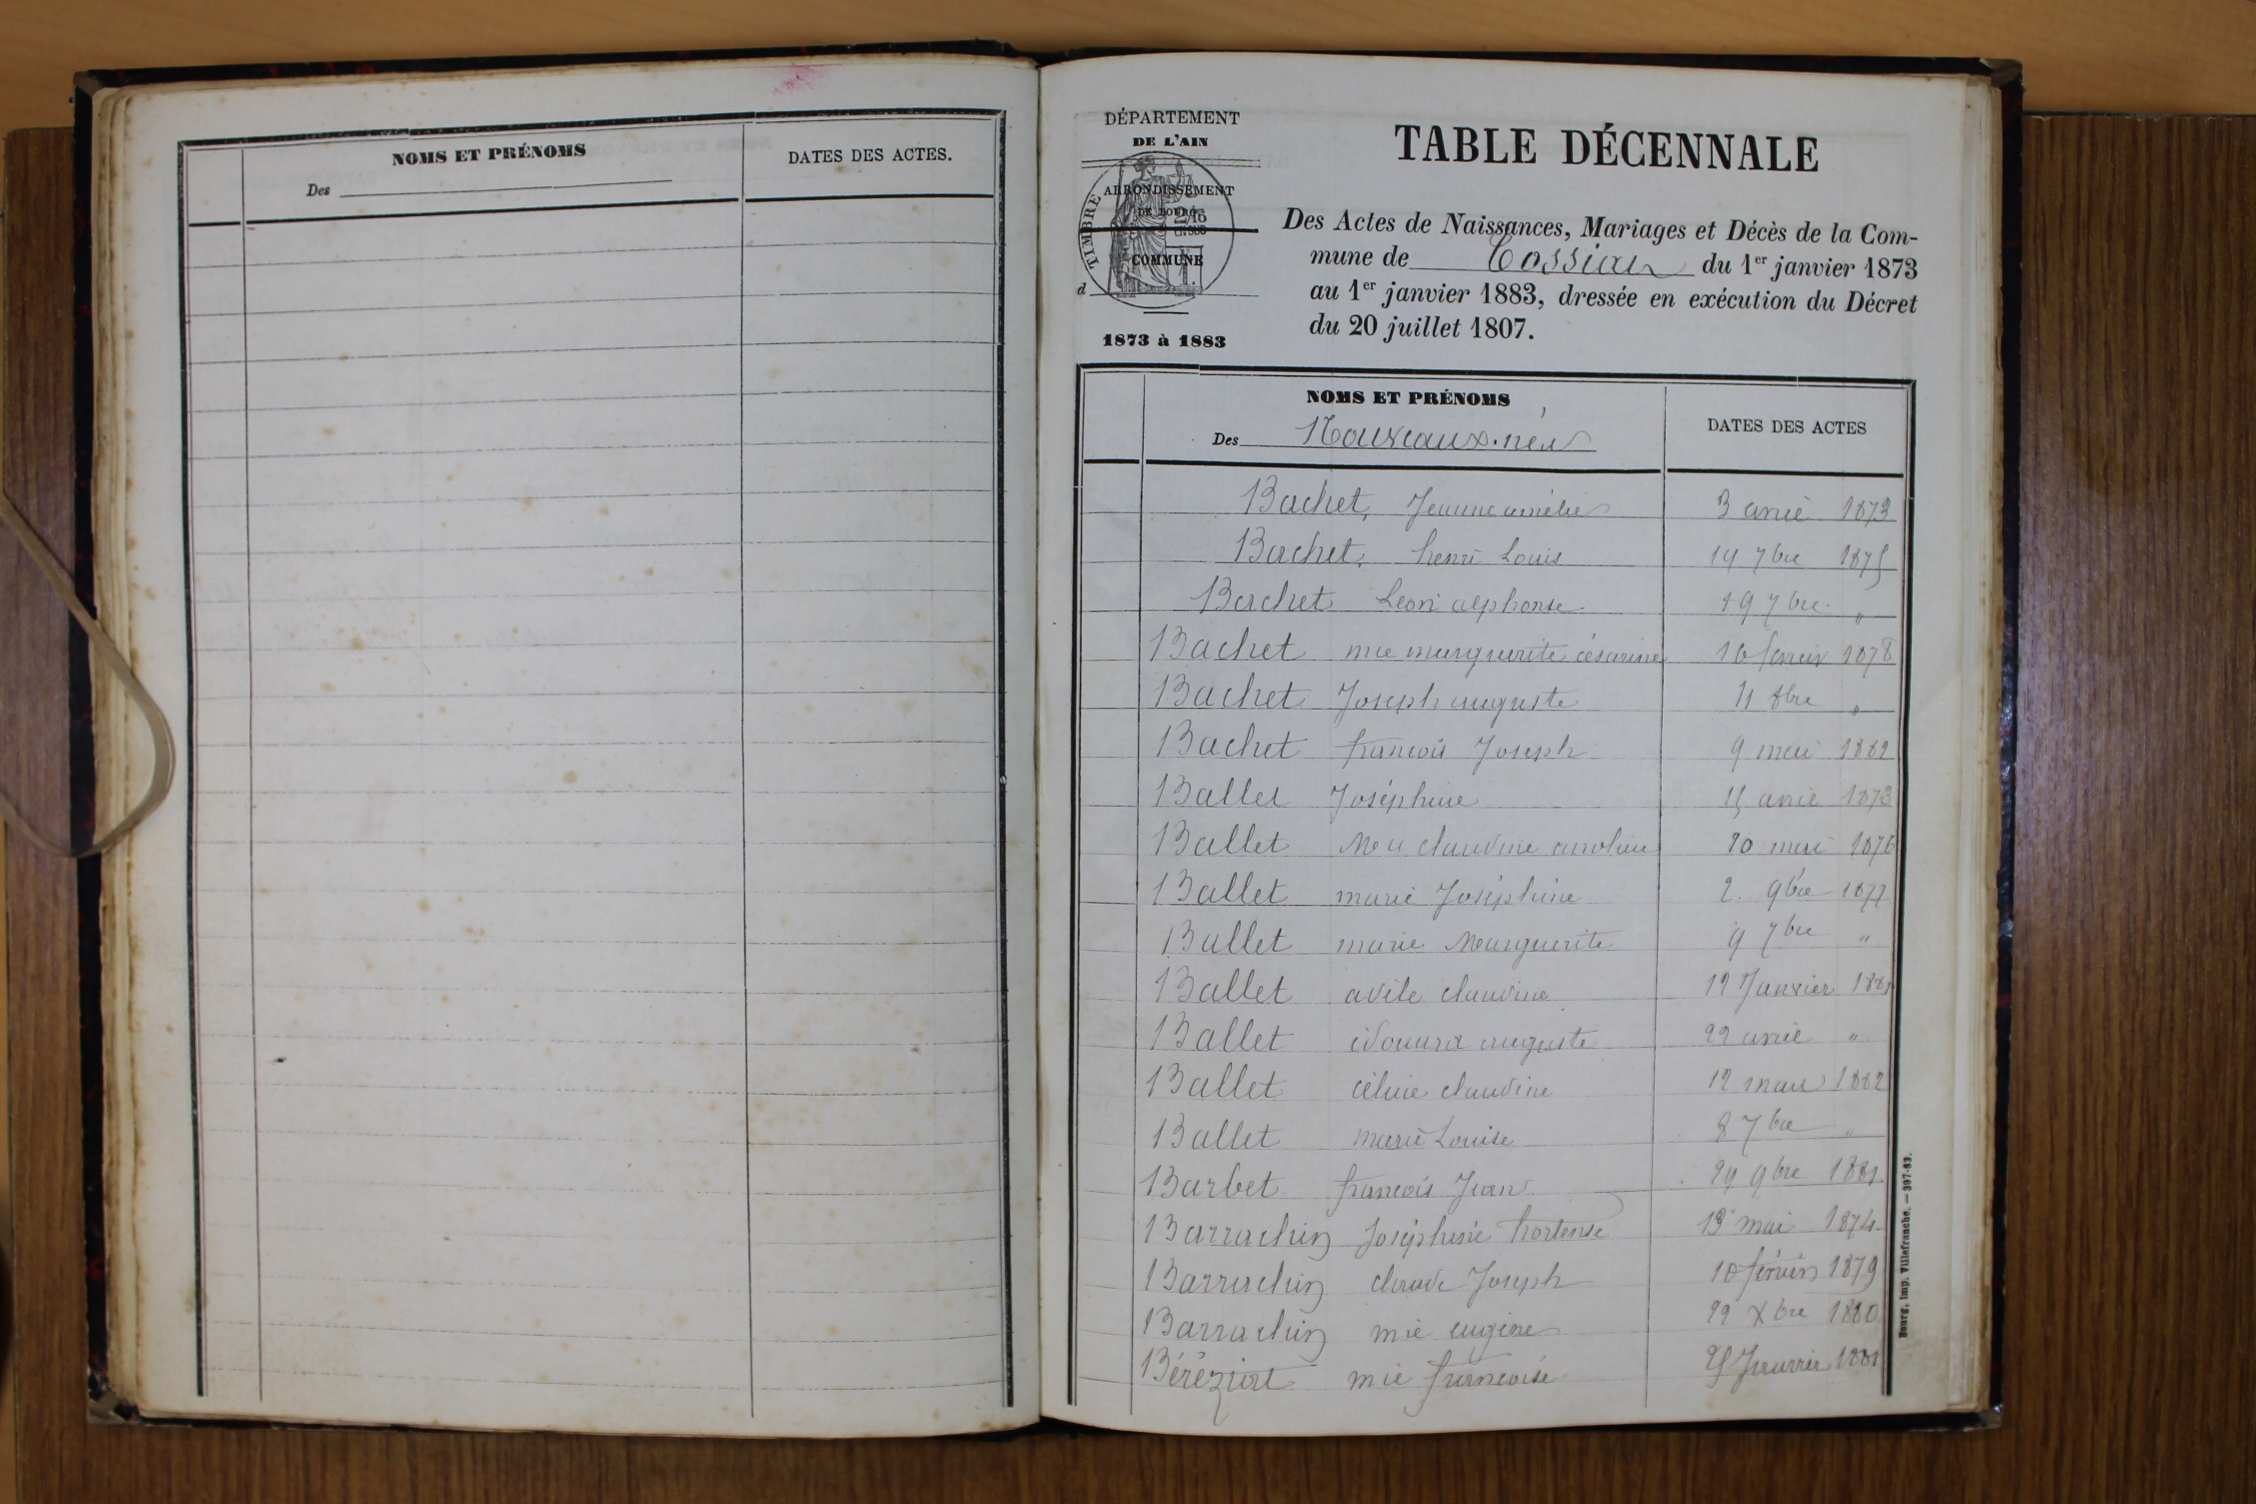 NOMS ET PRÉNOMS
Des
DATES DES ACTES.
DÉPARTEMENT
DE L'AIN
ARRONDISSEMENT
DE BOURG
TIMBRE
COMMUNE
d
1873 à 1883
TABLE DÉCENNALE
Des Actes de Naissances, Mariages et Décès de la Com-
mune de Cossiat du 1er janvier 1873
au 1er janvier 1883, dressée en exécution du Décret
du 20 juillet 1807.
NOMS ET PRÉNOMS
Des Nouveaux-nés
DATES DES ACTES
Bachet, Jeanne amélie 3 avril 1873
Bachet, henri Louis 14 7bre 1875
Bachet Léon alphonse 19 7bre "
Bachet mie marguerite césarine 16 février 1878
Bachet Joseph auguste 11 8bre "
Bachet françois Joseph 9 mai 1882
Ballet Joséphine 15 avril 1873
Ballet claudine caroline 20 mai 1876
Ballet marie Joséphine 2 9bre 1877
Ballet marie Marguerite 9 7bre "
Ballet claudine 12 Janvier 1881
Ballet édouard auguste 22 avril "
Ballet céline claudine 12 mars 1882
Ballet marie Louise 8 7bre "
Barbet françois Jean 24 9bre 1881
Barrachin Joséphine hortense 13 mai 1874
Barrachin claude Joseph 10 février 1879
Barrachin mie eugénie 22 xbre 1880
Béréziat mie françoise 25 Janvier 1881
Bourg, imp. Villefranche. — 397-83.